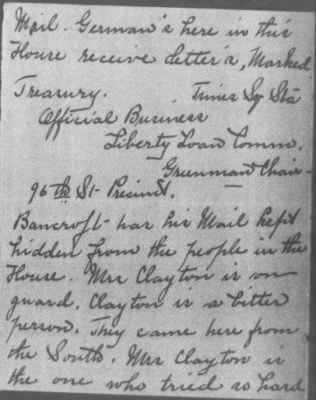 Mail. German's here in this
House receive letter's, Marked
Treasury. Times Sq Sta
Official Business
Liberty Loan Comm.
Greenman Chair-
96th St- Precinct.
Bancroft has his Mail kept
hidden from the people in the
House. Mrs Clayton is on
guard. Clayton is a bitter
person. They came here from
the South. Mrs Clayton is
the one who tried so hard